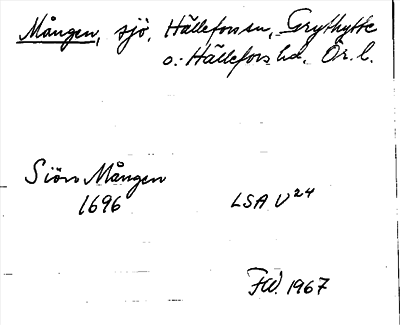 Mången, sjö, Hällefors sn, Grythytte
o. Hällefors hd, Ör. l.
Siön Mången
1696
LSA U 24
FW. 1967